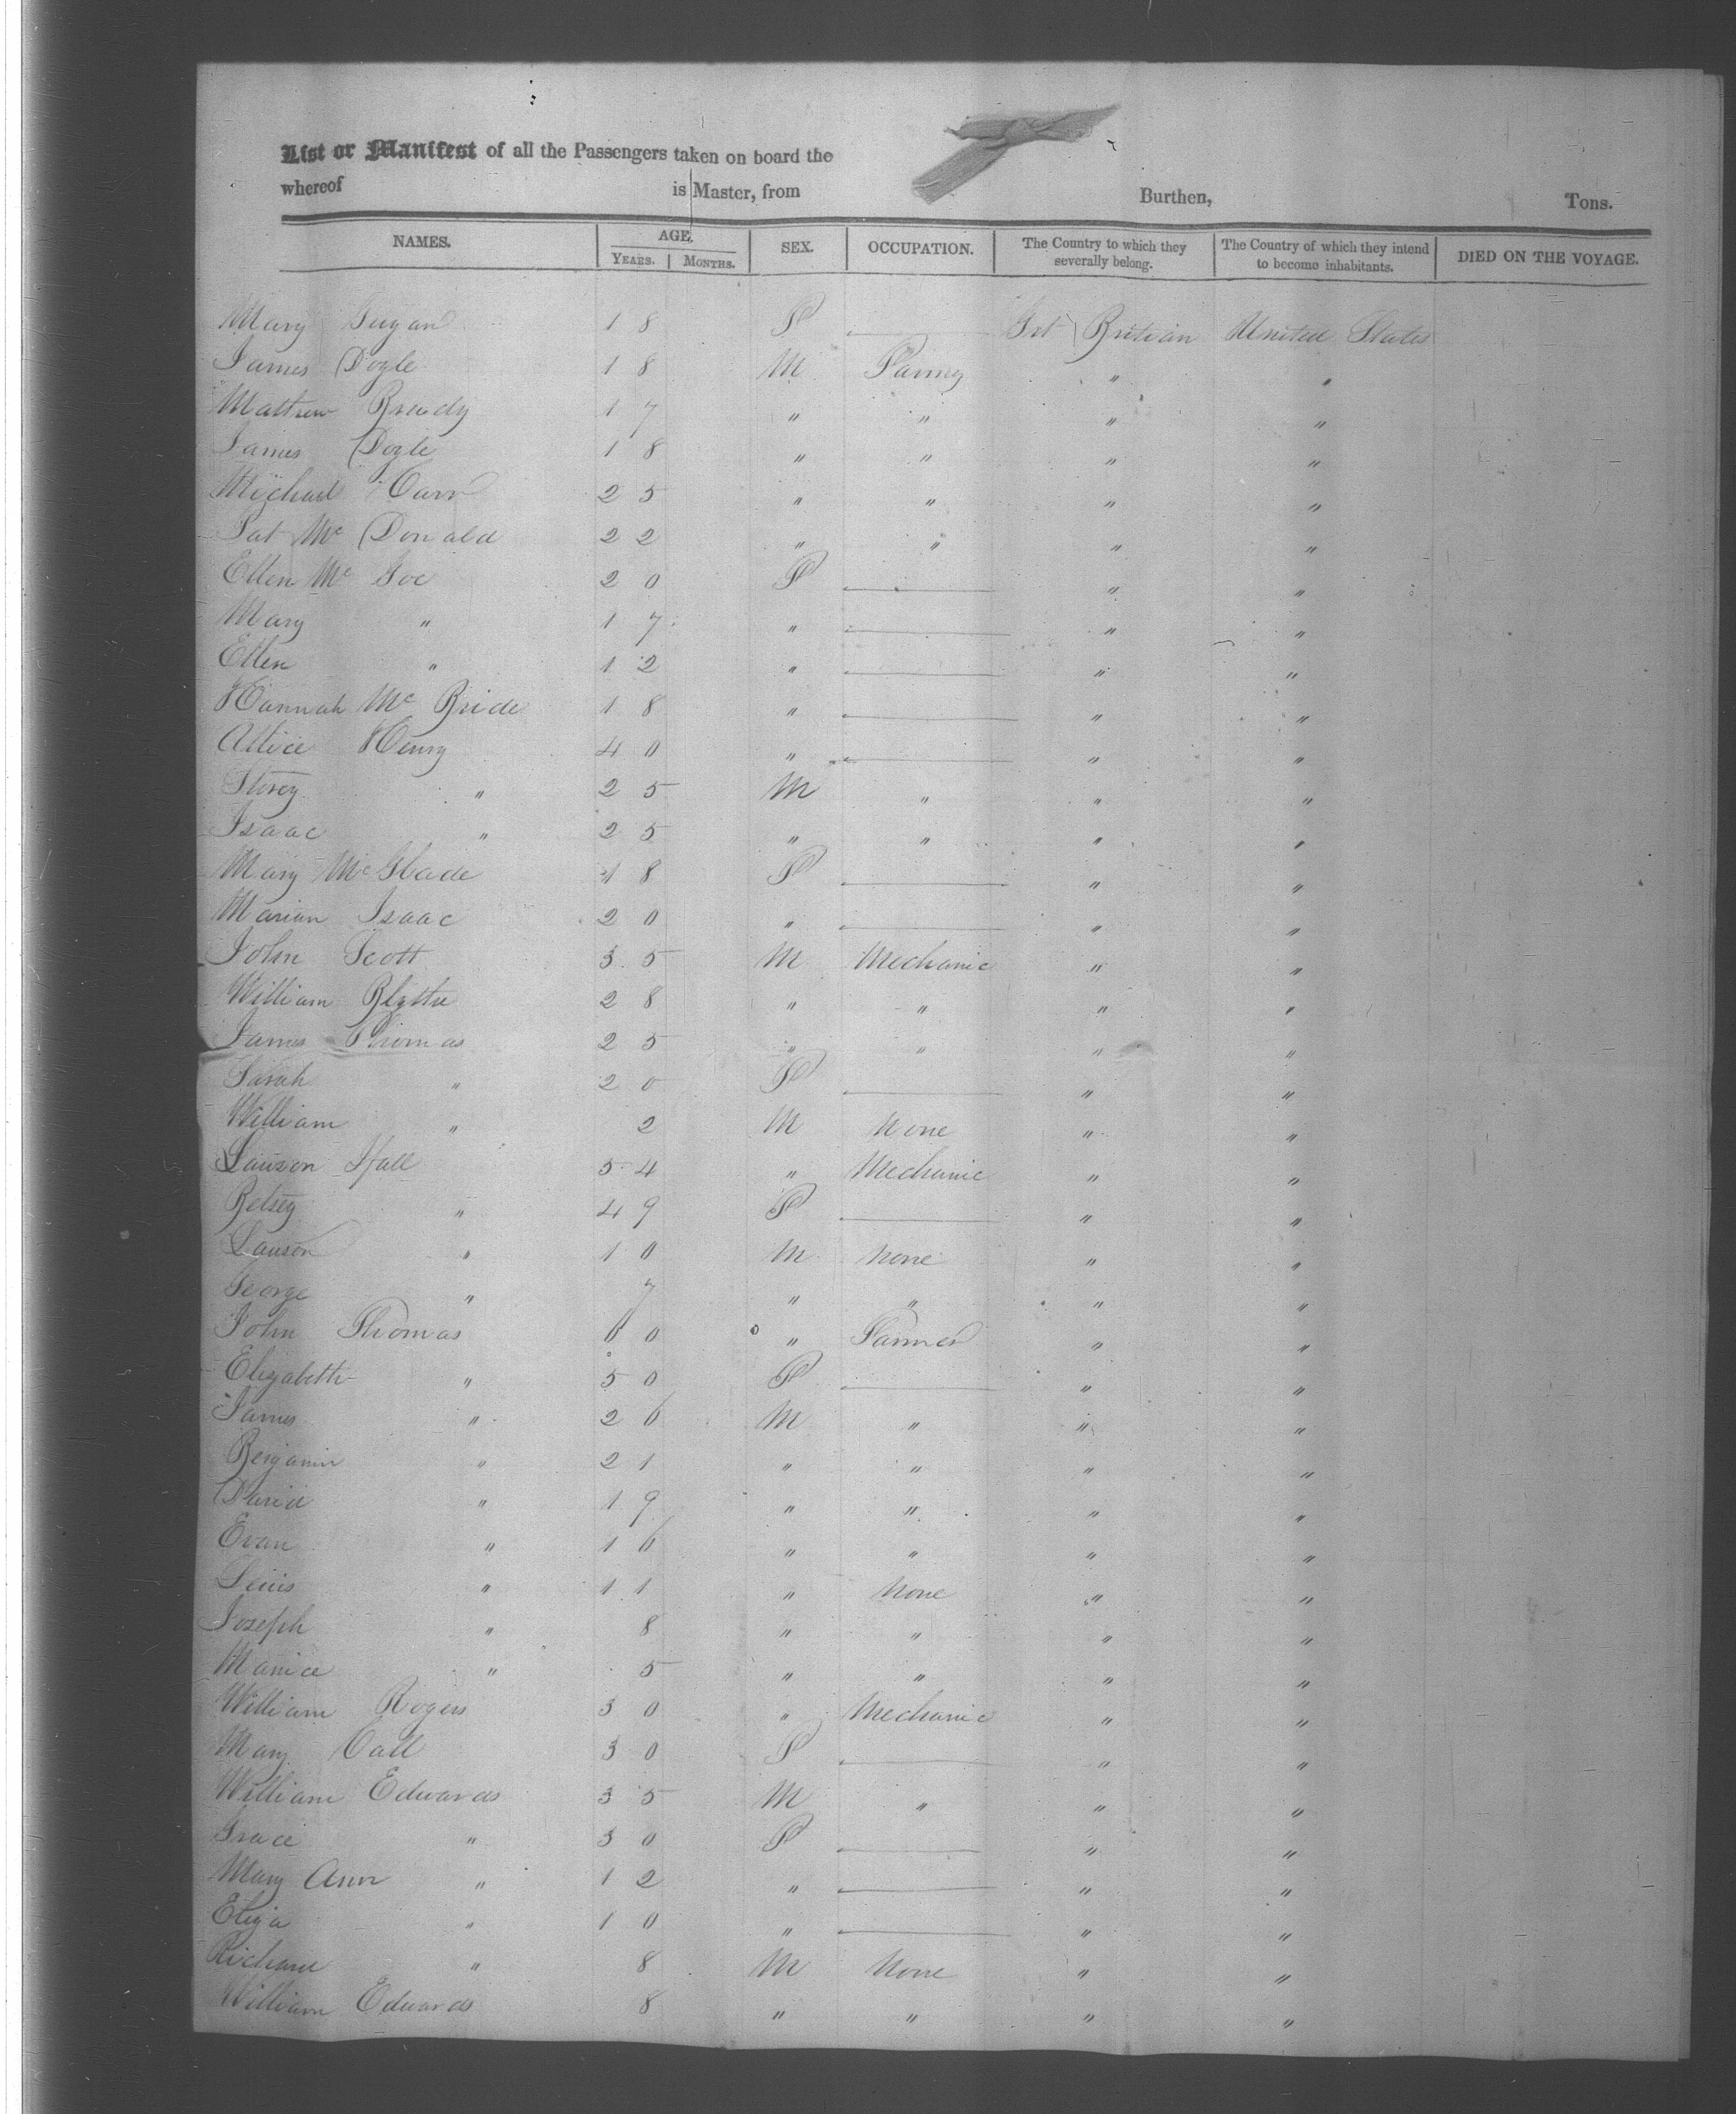 List or Manifest of all the Passengers taken on board the
whereof is Master, from Burthen, Tons.
NAMES. AGE. SEX. OCCUPATION. The Country to which they severally belong. The Country of which they intend to become inhabitants. DIED ON THE VOYAGE.
YEARS. MONTHS.
Mary 18 F — Grt Britian United States
James Doyle 18 M " "
Mathew Bready 17 " " " "
James Doyle 18 " " " "
Michael Carr 25 " " " "
Pat Mc Donald 22 " " " "
Ellen Mc 20 F — " "
Mary " 17 " — " "
Ellen " 12 " — " "
Hannah Mc Bride 18 " — " "
Allice Henry 40 " — " "
Storey " 25 M " " "
Isaac " 25 " " " "
Mary McGlade 18 F — " "
Marian Isaac 20 " — " "
John Scott 35 M Mechanic " "
William Blythe 28 " " " "
James Thomas 25 " " " "
Sarah " 20 F — " "
William " 2 M None " "
Lawson Hall 54 " Mechanic " "
Betsey " 49 F — " "
Lawson " 10 M None " "
George " 7 " " " "
John Thomas 60 " Farmer " "
Elizabeth " 50 F — " "
James " 26 M " " "
Benjamin " 21 " " " "
David " 19 " " " "
Evan " 16 " " " "
Lewis " 11 " None " "
Joseph " 8 " " " "
" 5 " " " "
William Rogers 30 " Mechanic " "
Mary Call 30 F — " "
William Edwards 35 M " " "
Grace " 30 F — " "
Mary Ann " 12 " — " "
Eliza " 10 " — " "
Richard " 8 M None " "
William Edwards 8 " " " "